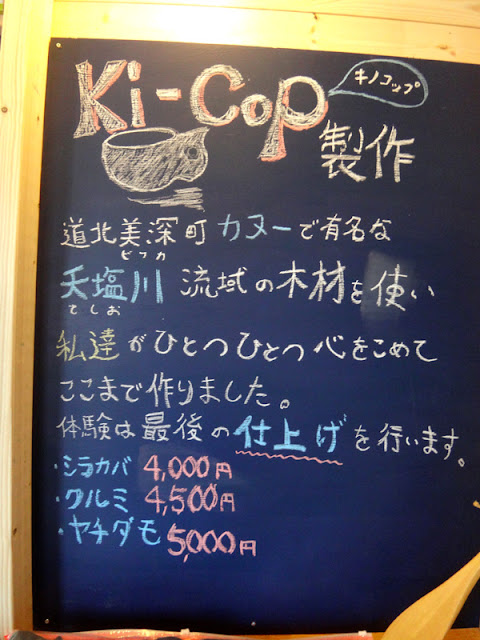 Ki-Cop
キノコップ
製作
道北美深町カヌーで有名な
ビフカ
天塩川 流域の木材を使い
てしお
私達がひとつひとつ心をこめて
ここまで作りました。
体験は最後の仕上げを行います。
・シラカバ 4,000円
・クルミ 4,500円
・ヤチダモ 5,000円